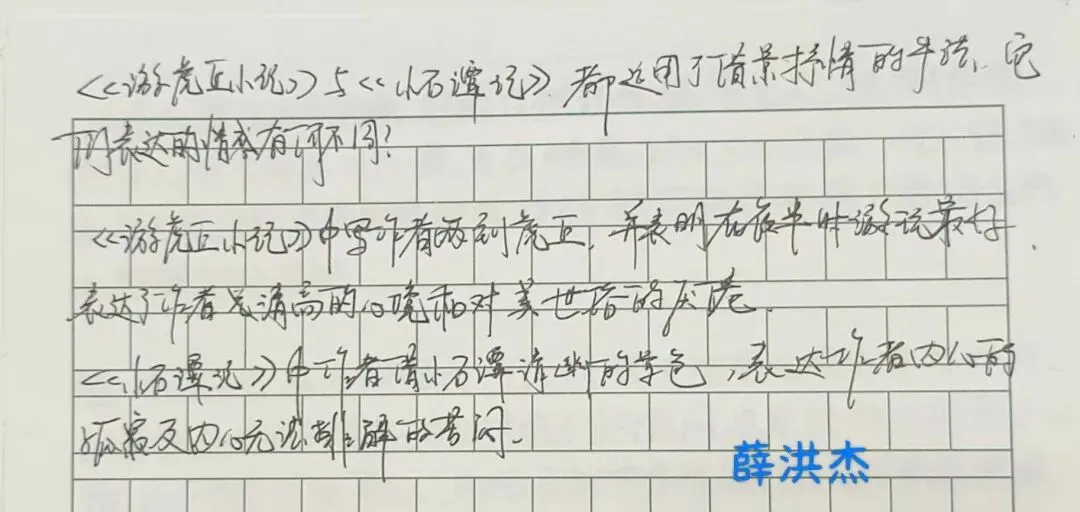 《游虎丘小记》与《小石潭记》都运用了借景抒情的手法,它
们表达的情感有何不同?
《游虎丘小记》中写作者两到虎丘,并表明在夜半时游玩最好.
表达了作者清高的心境和对世俗的厌倦.
《小石潭记》中作者借小石潭清幽的景色,表达作者内心的
孤寂及内心无法排解的苦闷.
薛洪杰